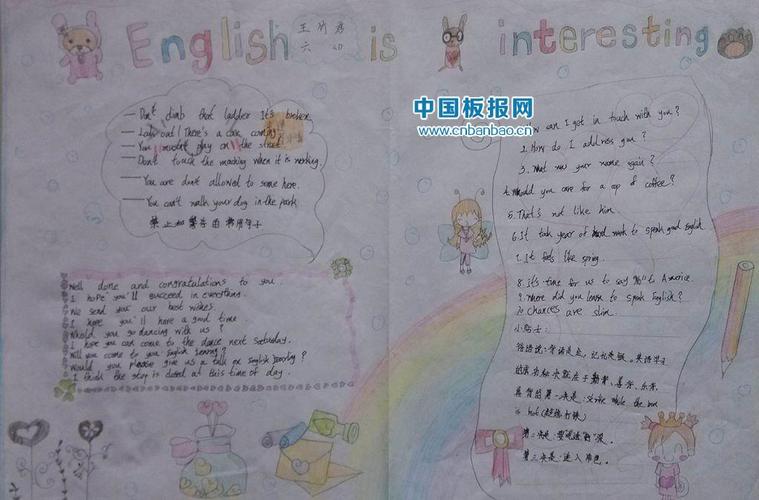 English is interesting
王
六
中国板报网
www.cnbanbao.cn
Don't climb that ladder It's broken
Look out! There's a car coming
You mustn't play on the street
Don't touch the maching when it is working.
You are don't allowed to some here.
You can't walk your dog in the park
禁止和警告的常用句子
Well done and congratulations to you.
I hope you'll succeed in everything.
We send you our best wishes
I hope you'll have a good time
Whould you go dancing with us ?
I hope you can come to the dance next Saturday.
Will you come to you English Evening?
Would you please give us a talk on English learning?
I think the shop is closed at this time of day.
How can I got in touch with you?
2. How do I address you?
3. What was your name again?
4. Would you care for a cup of coffee?
5. That's not like him
6. It took year of hard work to speak good English
7. It feels like spring.
8. It's time for us to say "No" to America.
9. Where did you learn to speak English?
10 Chances are slim
小贴士:
俗话说:学语是点,记忆是
第一决是: Strike while the iron
is hot (趁热打铁)
第二决是:
第三决是:进入角色。